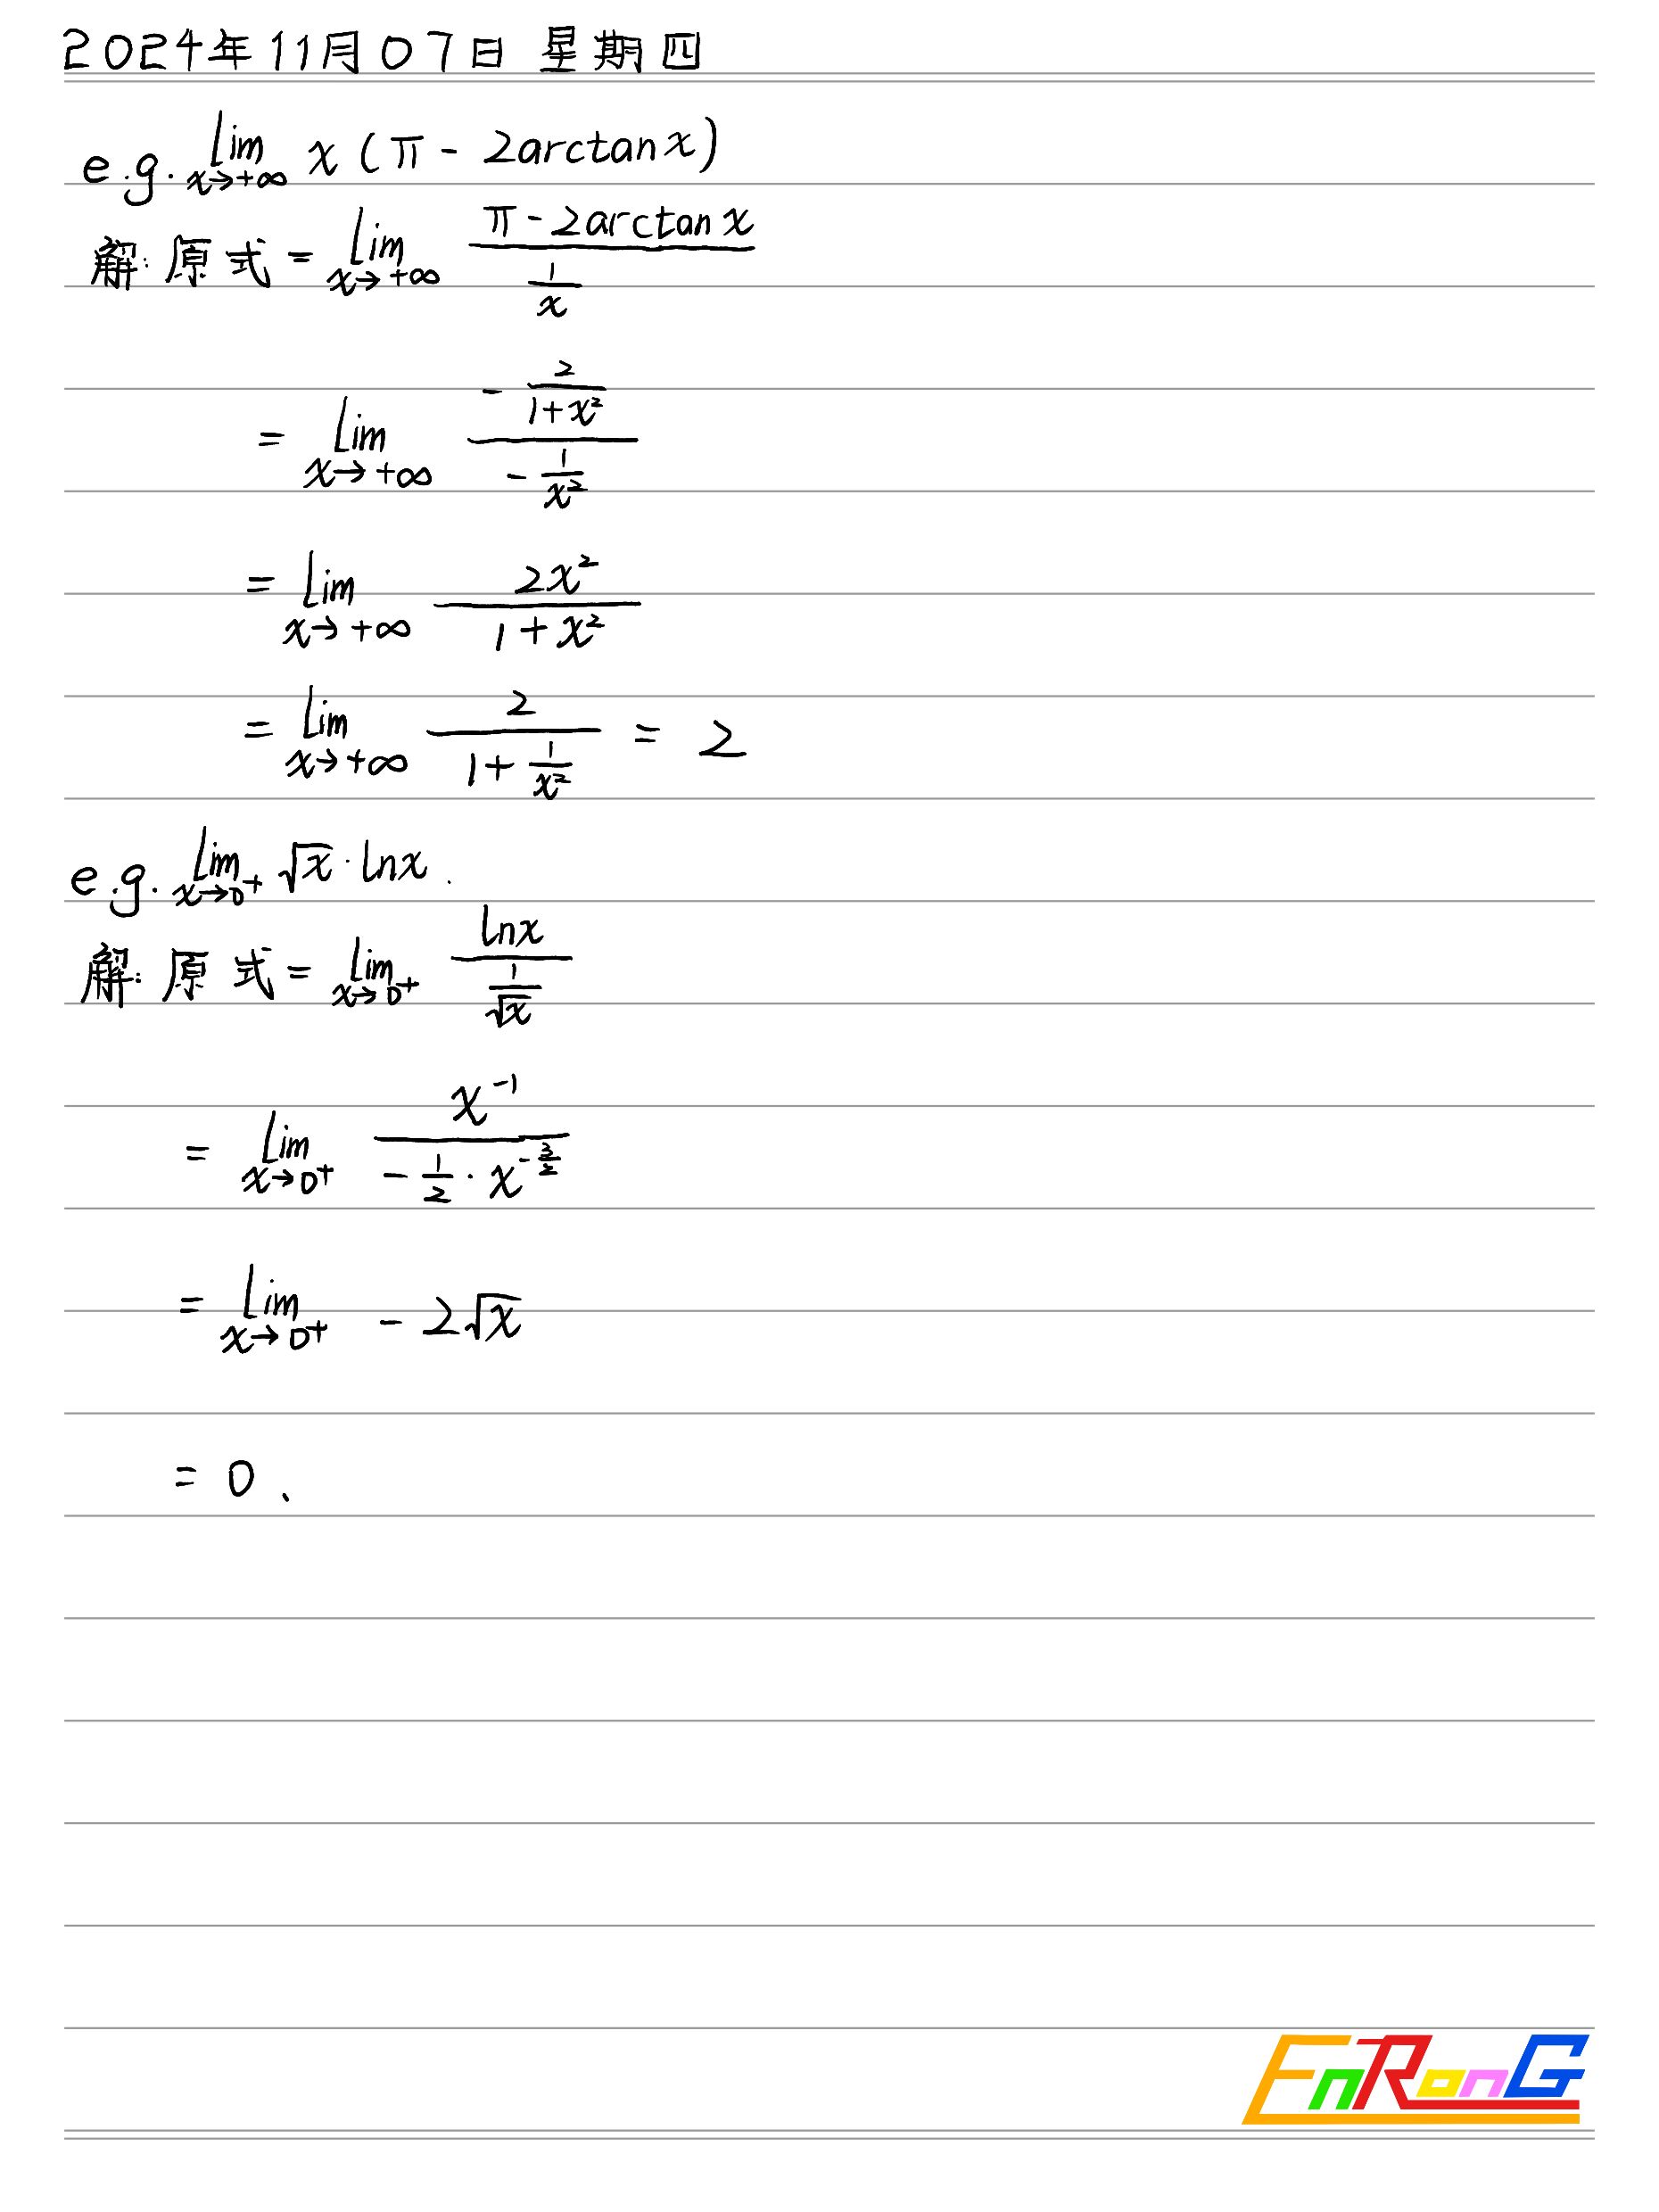 2024年11月07日 星期四
e.g. lim x→+∞ x(π - 2arctanx)
解: 原式 = lim x→+∞ (π - 2arctanx)/(1/x)
= lim x→+∞ (-2/(1+x²))/(-1/x²)
= lim x→+∞ 2x²/(1+x²)
= lim x→+∞ 2/(1+1/x²) = 2
e.g. lim x→0⁺ √x · lnx.
解: 原式 = lim x→0⁺ lnx/(1/√x)
= lim x→0⁺ x⁻¹/(-1/2 · x^(-3/2))
= lim x→0⁺ -2√x
= 0.
EnRonG